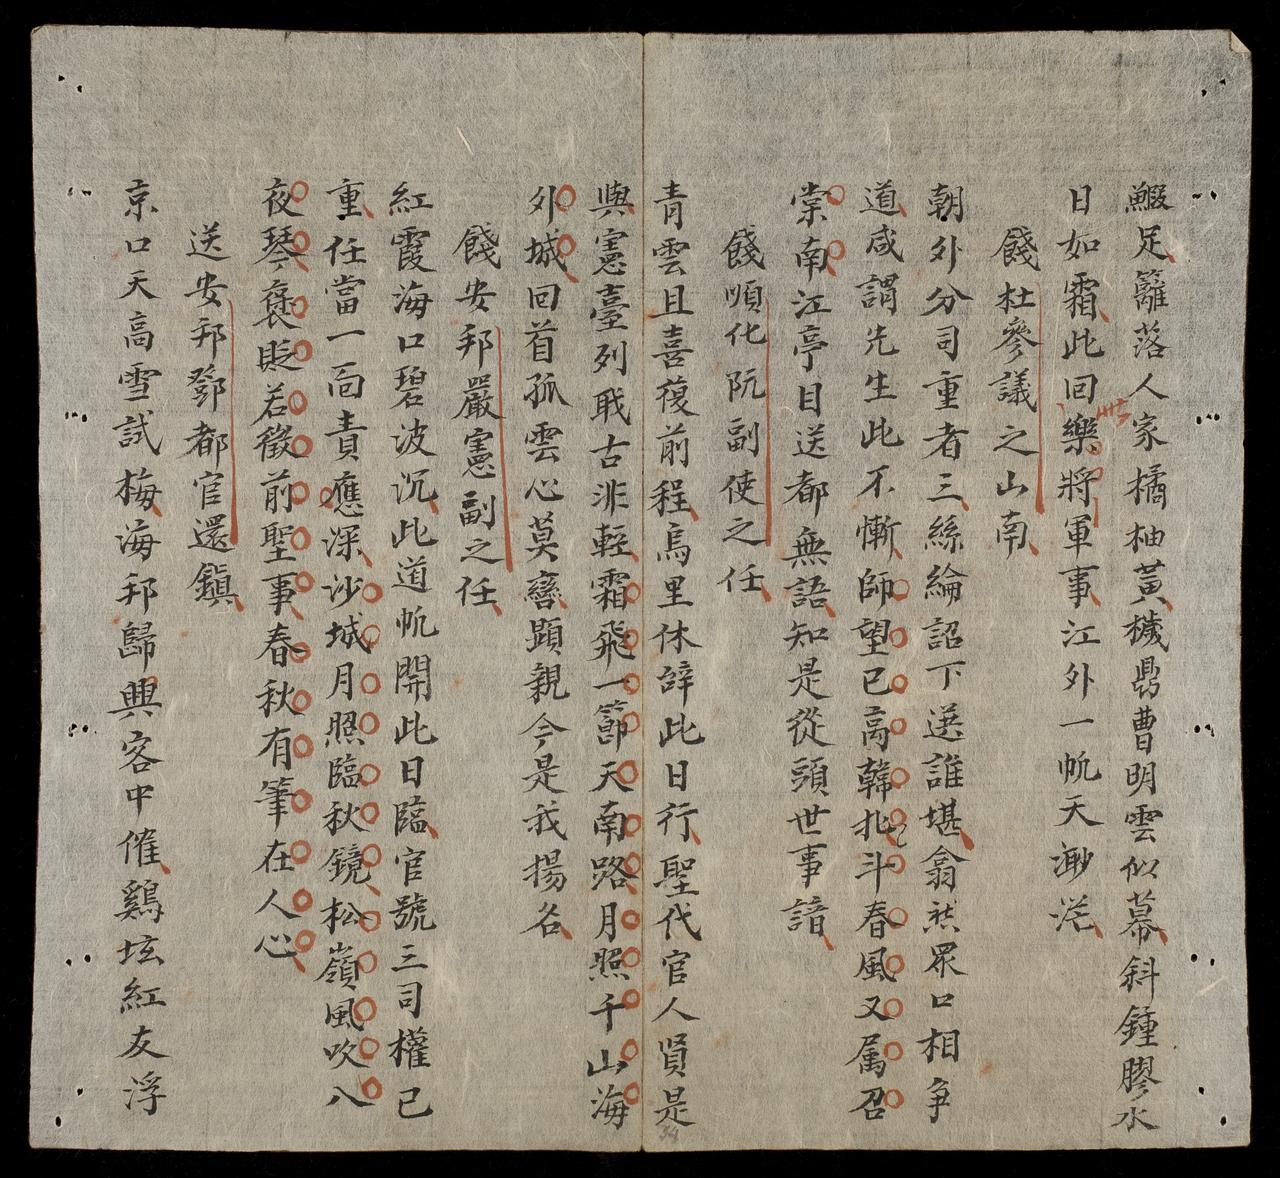 鰕足籬落人家橘柚黃機鼎曹明雲似幕斜鍾膠水
日如霜此回樂將軍事江外一帆天渺茫
餞杜參議之山南
朝外分司重者三絲綸詔下送誰堪翕然眾口相爭
道咸謂先生此不慚師望已高韓北斗春風又属召
棠南江亭目送都無語知是從頭世事諳
餞順化阮副使之任
青雲且喜蔓前程烏里休辞此日行聖代官人賢是
與憲臺列戢古非輕霜飛一節天南路月照千山海
外城回首孤雲心莫戀顕親今是我揚名
餞安邦嚴憲副之任
紅霞海口碧波沉此道帆開此日臨官號三司權已
重任當一面責應深沙城月照臨秋鏡松嶺風吹八
夜琴褒貶若徵前聖事春秋有筆在人心
送安邦鄧都官還鎮
京口天高雪試梅海邦歸興客中催鷄坛紅友浮